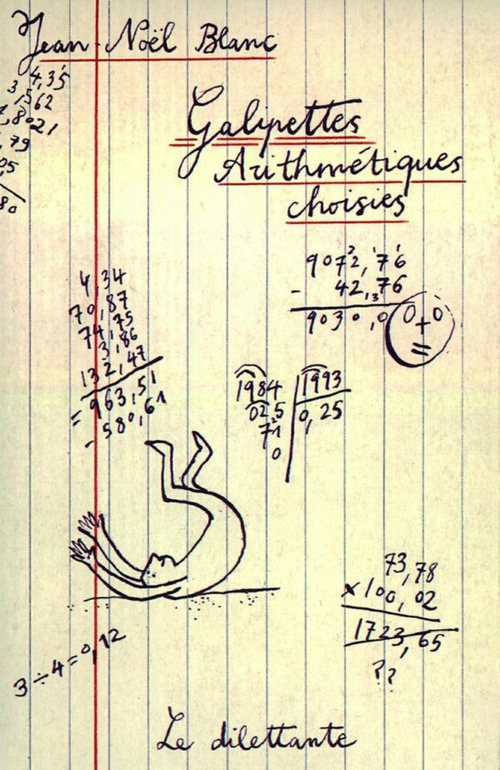 Jean-Noël Blanc
4,35
3,562
Galipettes
Arithmétiques
choisies
9072,76
- 42,76
9030,0
0+0
=
4,34
70,87
74,75
3,86
132,47
= 963,51
- 580,61
1984 1993
02,5 0,25
71
0
73,78
×100,02
1723,65
??
3÷4=0,12
Le dilettante